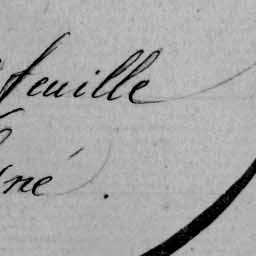 feuille
gné.